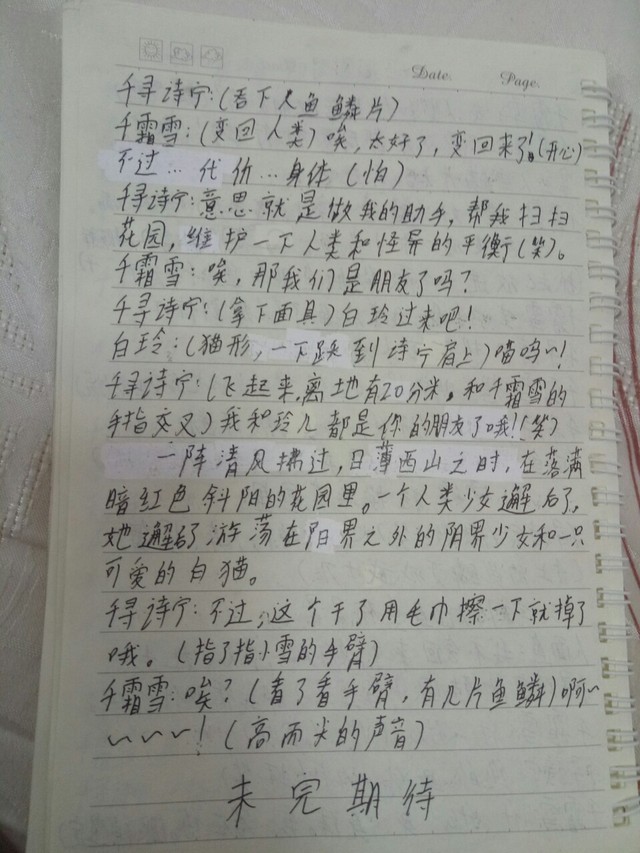 Date. Page.
千寻诗宁:(吞下人鱼鳞片)
千霜雪:(变回人类)唉,太好了,变回来了!(开心)
不过…代价…身体(怕)
千寻诗宁:意思就是做我的助手,帮我扫扫
花园,维护一下人类和怪异的平衡(笑)。
千霜雪:唉,那我们是朋友了吗?
千寻诗宁:(拿下面具)白玲过来吧!
白玲:(猫形,一下跃到诗宁肩上)喵呜~!
千寻诗宁:(飞起来,离地有20分米,和千霜雪的
手指交叉)我和玲儿都是你的朋友了哦!(笑)
一阵清风拂过,日薄西山之时,在落满
暗红色斜阳的花园里。一个人类少女邂逅了,
她邂逅了游荡在阳界之外的阴界少女和一只
可爱的白猫。
千寻诗宁:不过,这个干了用毛巾擦一下就掉了
哦。(指了指小雪的手臂)
千霜雪:唉?(看了看手臂,有几片鱼鳞)啊~
~~~!(高而尖的声音)
未完期待